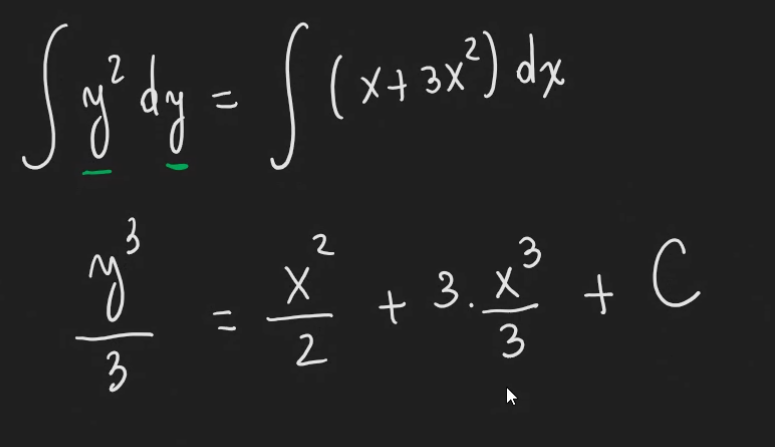 ∫ y² dy = ∫ (x + 3x²) dx
y³/3 = x²/2 + 3 · x³/3 + C